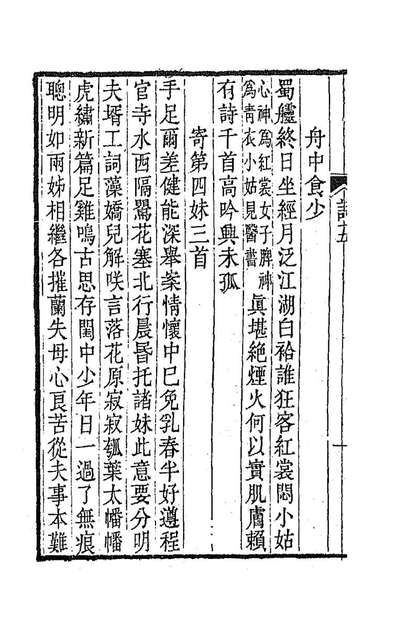 舟中食少
蜀艫終日坐經月泛江湖白袷誰狂客紅裳悶小姑
心神爲紅裳女子脾神
爲靑衣小姑見醫書
眞堪絕煙火何以實肌膚賴
有詩千首高吟興未孤
寄第四妹三首
手足爾差健能深舉案情懷中已免乳春半好遵程
官寺水西隔罵花塞北行晨昏托諸妹此意要分明
夫壻工詞藻嬌兒解咲言落花原寂寂瓠葉太幡幡
虎繡新篇足雞鳴古思存閨中少年日一過了無痕
聰明如兩姊相繼各摧蘭失母心良苦從夫事本難